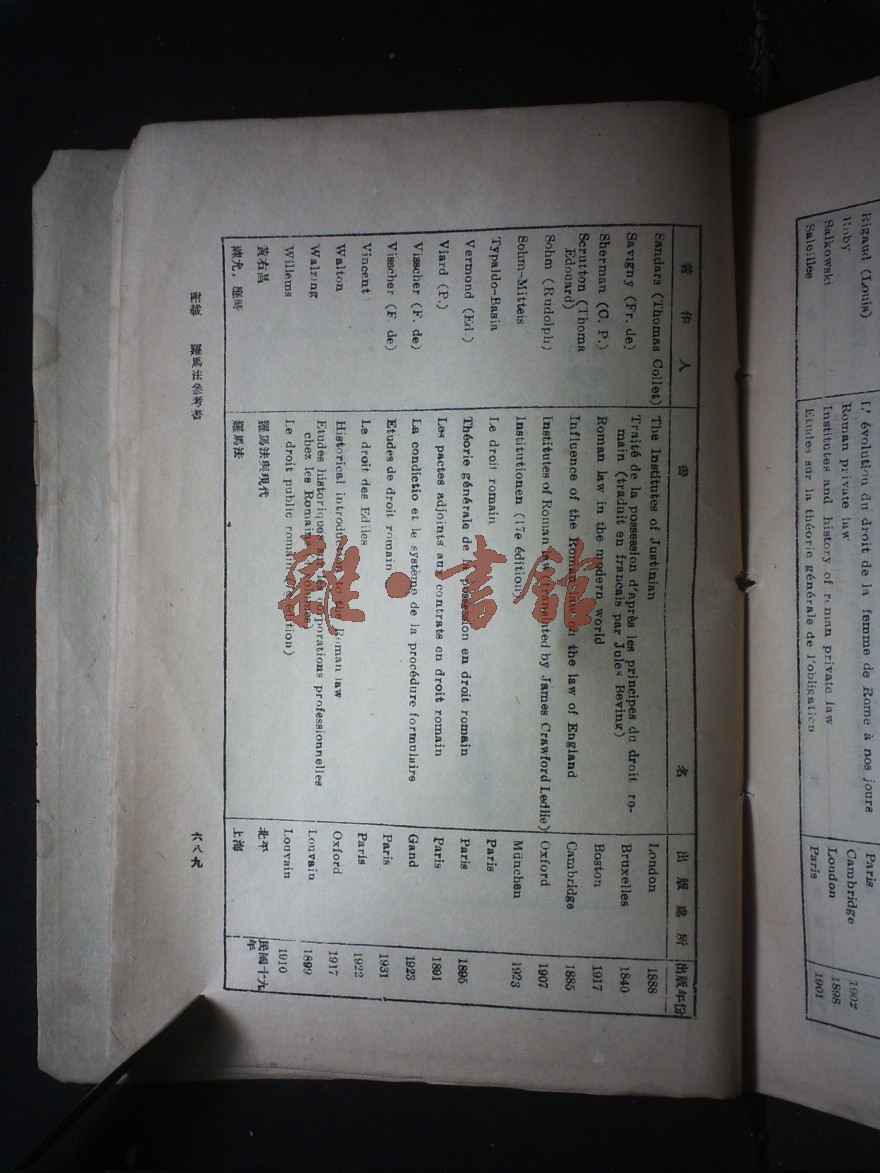 Rigaud (Louis) L'évolution du droit de la femme de Rome à nos jours Paris
Roby Roman private law Cambridge 1902
Salkowski Institutes and history of roman private law London 1898
Saleilles Etudes sur la théorie générale de l'obligation Paris 1901
著作人 書名 出版處所 出版年份
Sandars (Thomas Collet) The Institutes of Justinian London 1888
Savigny (Fr. de) Traité de la possession d'après les principes du droit ro-
main (traduit en francais par Jules Beving) Bruxelles 1840
Sherman (C. P.) Roman law in the modern world Boston 1917
Scrutton (Thoma
Edouard) Influence of the Roman law on the law of England Cambridge 1885
Sohm (Rudolph) Institutes of Roman law (translated by James Crawford Ledlie) Oxford 1907
Sohm-Mitteis Institutionen (17e édition) München 1923
Typaldo-Basia Le droit romain Paris
Vermond (Ed.) Théorie générale de la possession en droit romain Paris 1895
Viard (P.) Les pactes adjoints aux contrats en droit romain Paris 1891
Visscher (F. de) La condictio et le système de la procédure formulaire Gand 1923
Visscher (F. de) Etudes de droit romain Paris 1931
Vincent Le droit des Ediles Paris 1922
Walton Historical introduction to the Roman law Oxford 1917
Walzing Etudes historiques sur les corporations professionnelles
chez les Romains Louvain 1899
Willems Le droit public romain édition) Louvain 1910
黃右昌 羅馬法與現代 北平 民國十九年
陳允，應時 羅馬法 上海
附錄 羅馬法參考書
六八九